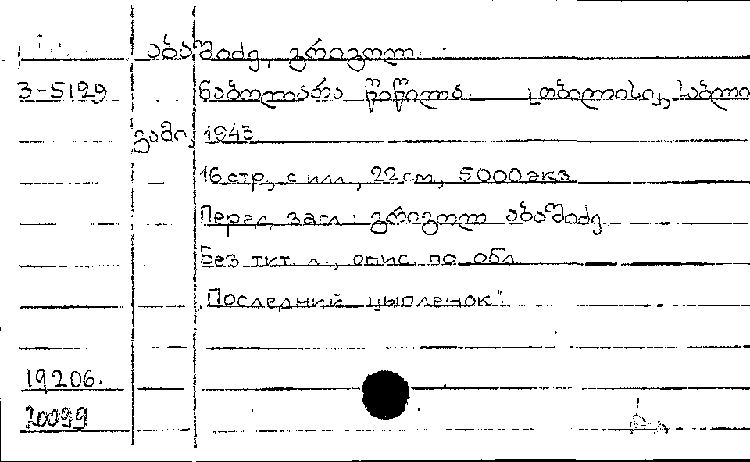 აბაშიძე, გრიგოლ.
3-5129 ნაბოლარა წიწილა. [თბილისი], საბლიტ-
გამი, 1943
16 стр, с илл, 22 см, 5000 экз
Перед. загл: გრიგოლ აბაშიძე
Без тит. л., опис по обл
"Последний цыпленок".
19206.
20099